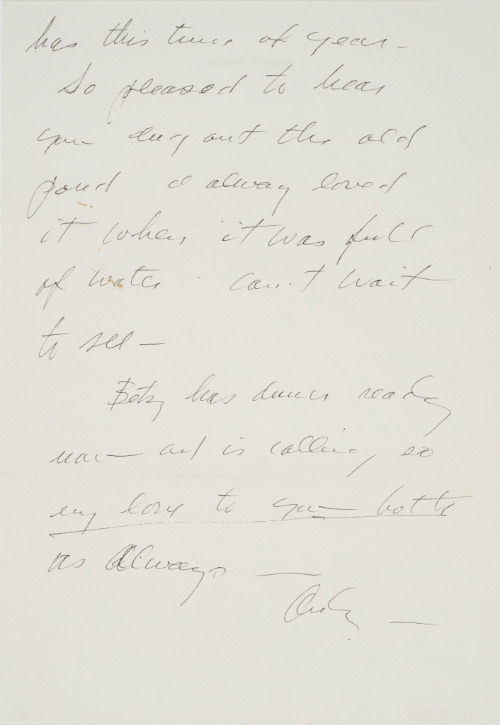 has this time of year –
So pleased to hear
you dug out the old
pond I alway loved
it when it was full
of water – can't wait
to see —
Betsy has dinner ready
now — and is calling, so
my love to you both
as always —
Andy —